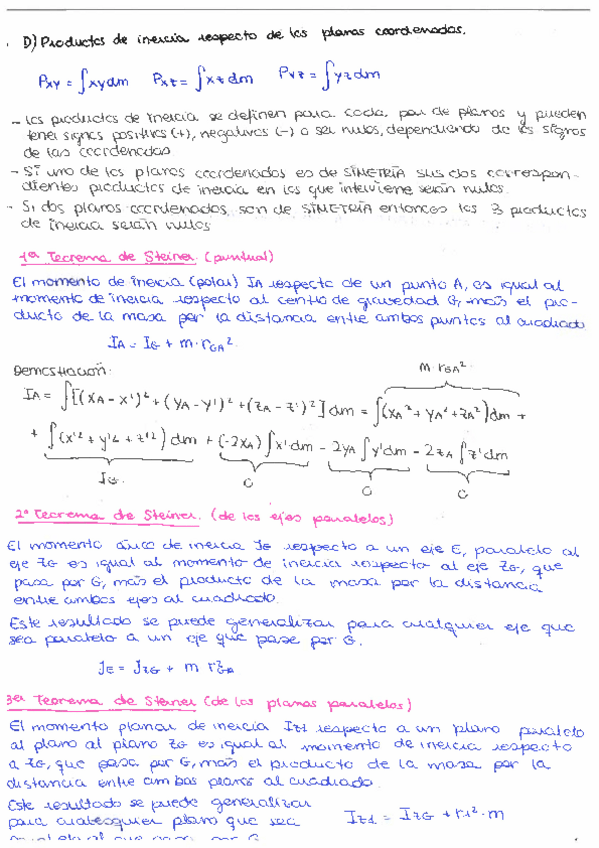 D) Productos de inercia respecto de los planos coordenados.
Pxy = ∫xydm Pxz = ∫xzdm Pyz = ∫yzdm
- Los productos de inercia se definen para cada par de planos y pueden
tener signos positivos (+), negativos (-) o ser nulos, dependiendo de los signos
de las coordenadas
- Si uno de los planos coordenados es de SIMETRÍA sus dos correspon-
dientes productos de inercia en los que interviene serán nulos.
- Si dos planos coordenados son de SIMETRÍA entonces los 3 productos
de inercia serán nulos
1er Teorema de Steiner (puntual)
El momento de inercia (polar) IA respecto de un punto A, es igual al
momento de inercia respecto al centro de gravedad G, más el pro-
ducto de la masa por la distancia entre ambos puntos al cuadrado
IA = IG + m·rGA²
Demostración: m rGA²
IA = ∫[(xA-x')²+(yA-y')²+(zA-z')²]dm = ∫(xA²+yA²+zA²)dm +
+ ∫(x'²+y'²+z'²)dm + (-2xA)∫x'dm - 2yA∫y'dm - 2zA∫z'dm
IG 0 0 0
2º Teorema de Steiner. (de los ejes paralelos)
El momento de inercia JE respecto a un eje E, paralelo al
eje ZG es igual al momento de inercia respecto al eje ZG, que
pasa por G, más el producto de la masa por la distancia
entre ambos ejes al cuadrado.
Este resultado se puede generalizar para cualquier eje que
sea paralelo a un eje que pase por G.
JE = JZG + m
3er Teorema de Steiner (de los planos paralelos)
El momento planar de inercia Iz1 respecto a un plano paralelo
al plano al plano ZG es igual al momento de inercia respecto
a ZG, que pasa por G, más el producto de la masa por la
distancia entre ambos planos al cuadrado.
Este resultado se puede generalizar
para cualesquier plano que sea Iz1 = IzG + r1²·m